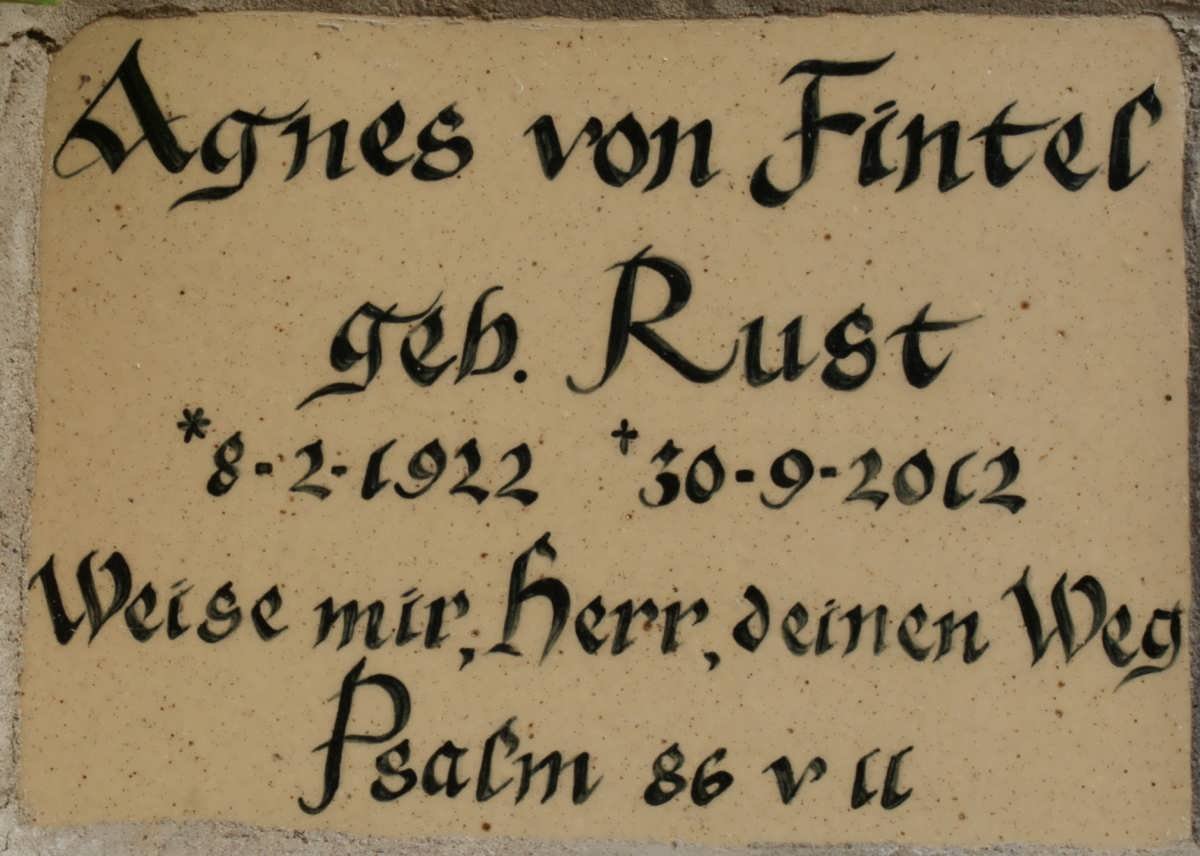 Agnes von Fintel
geb. Rust
*8-2-1922 †30-9-2012
Weise mir, Herr, deinen Weg
Psalm 86 v 11